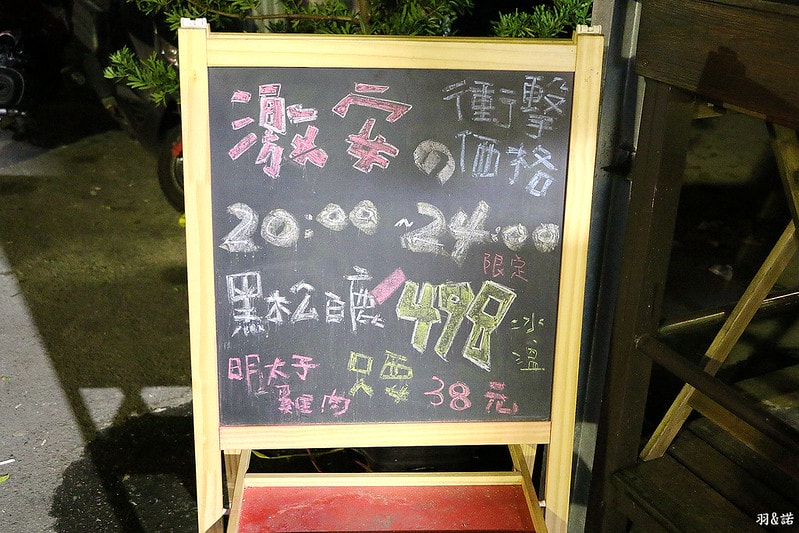 激安の衝撃価格
20:00~24:00
限定
黑松白鹿498
冰溫
明太子雞肉只要38元
羽&諾